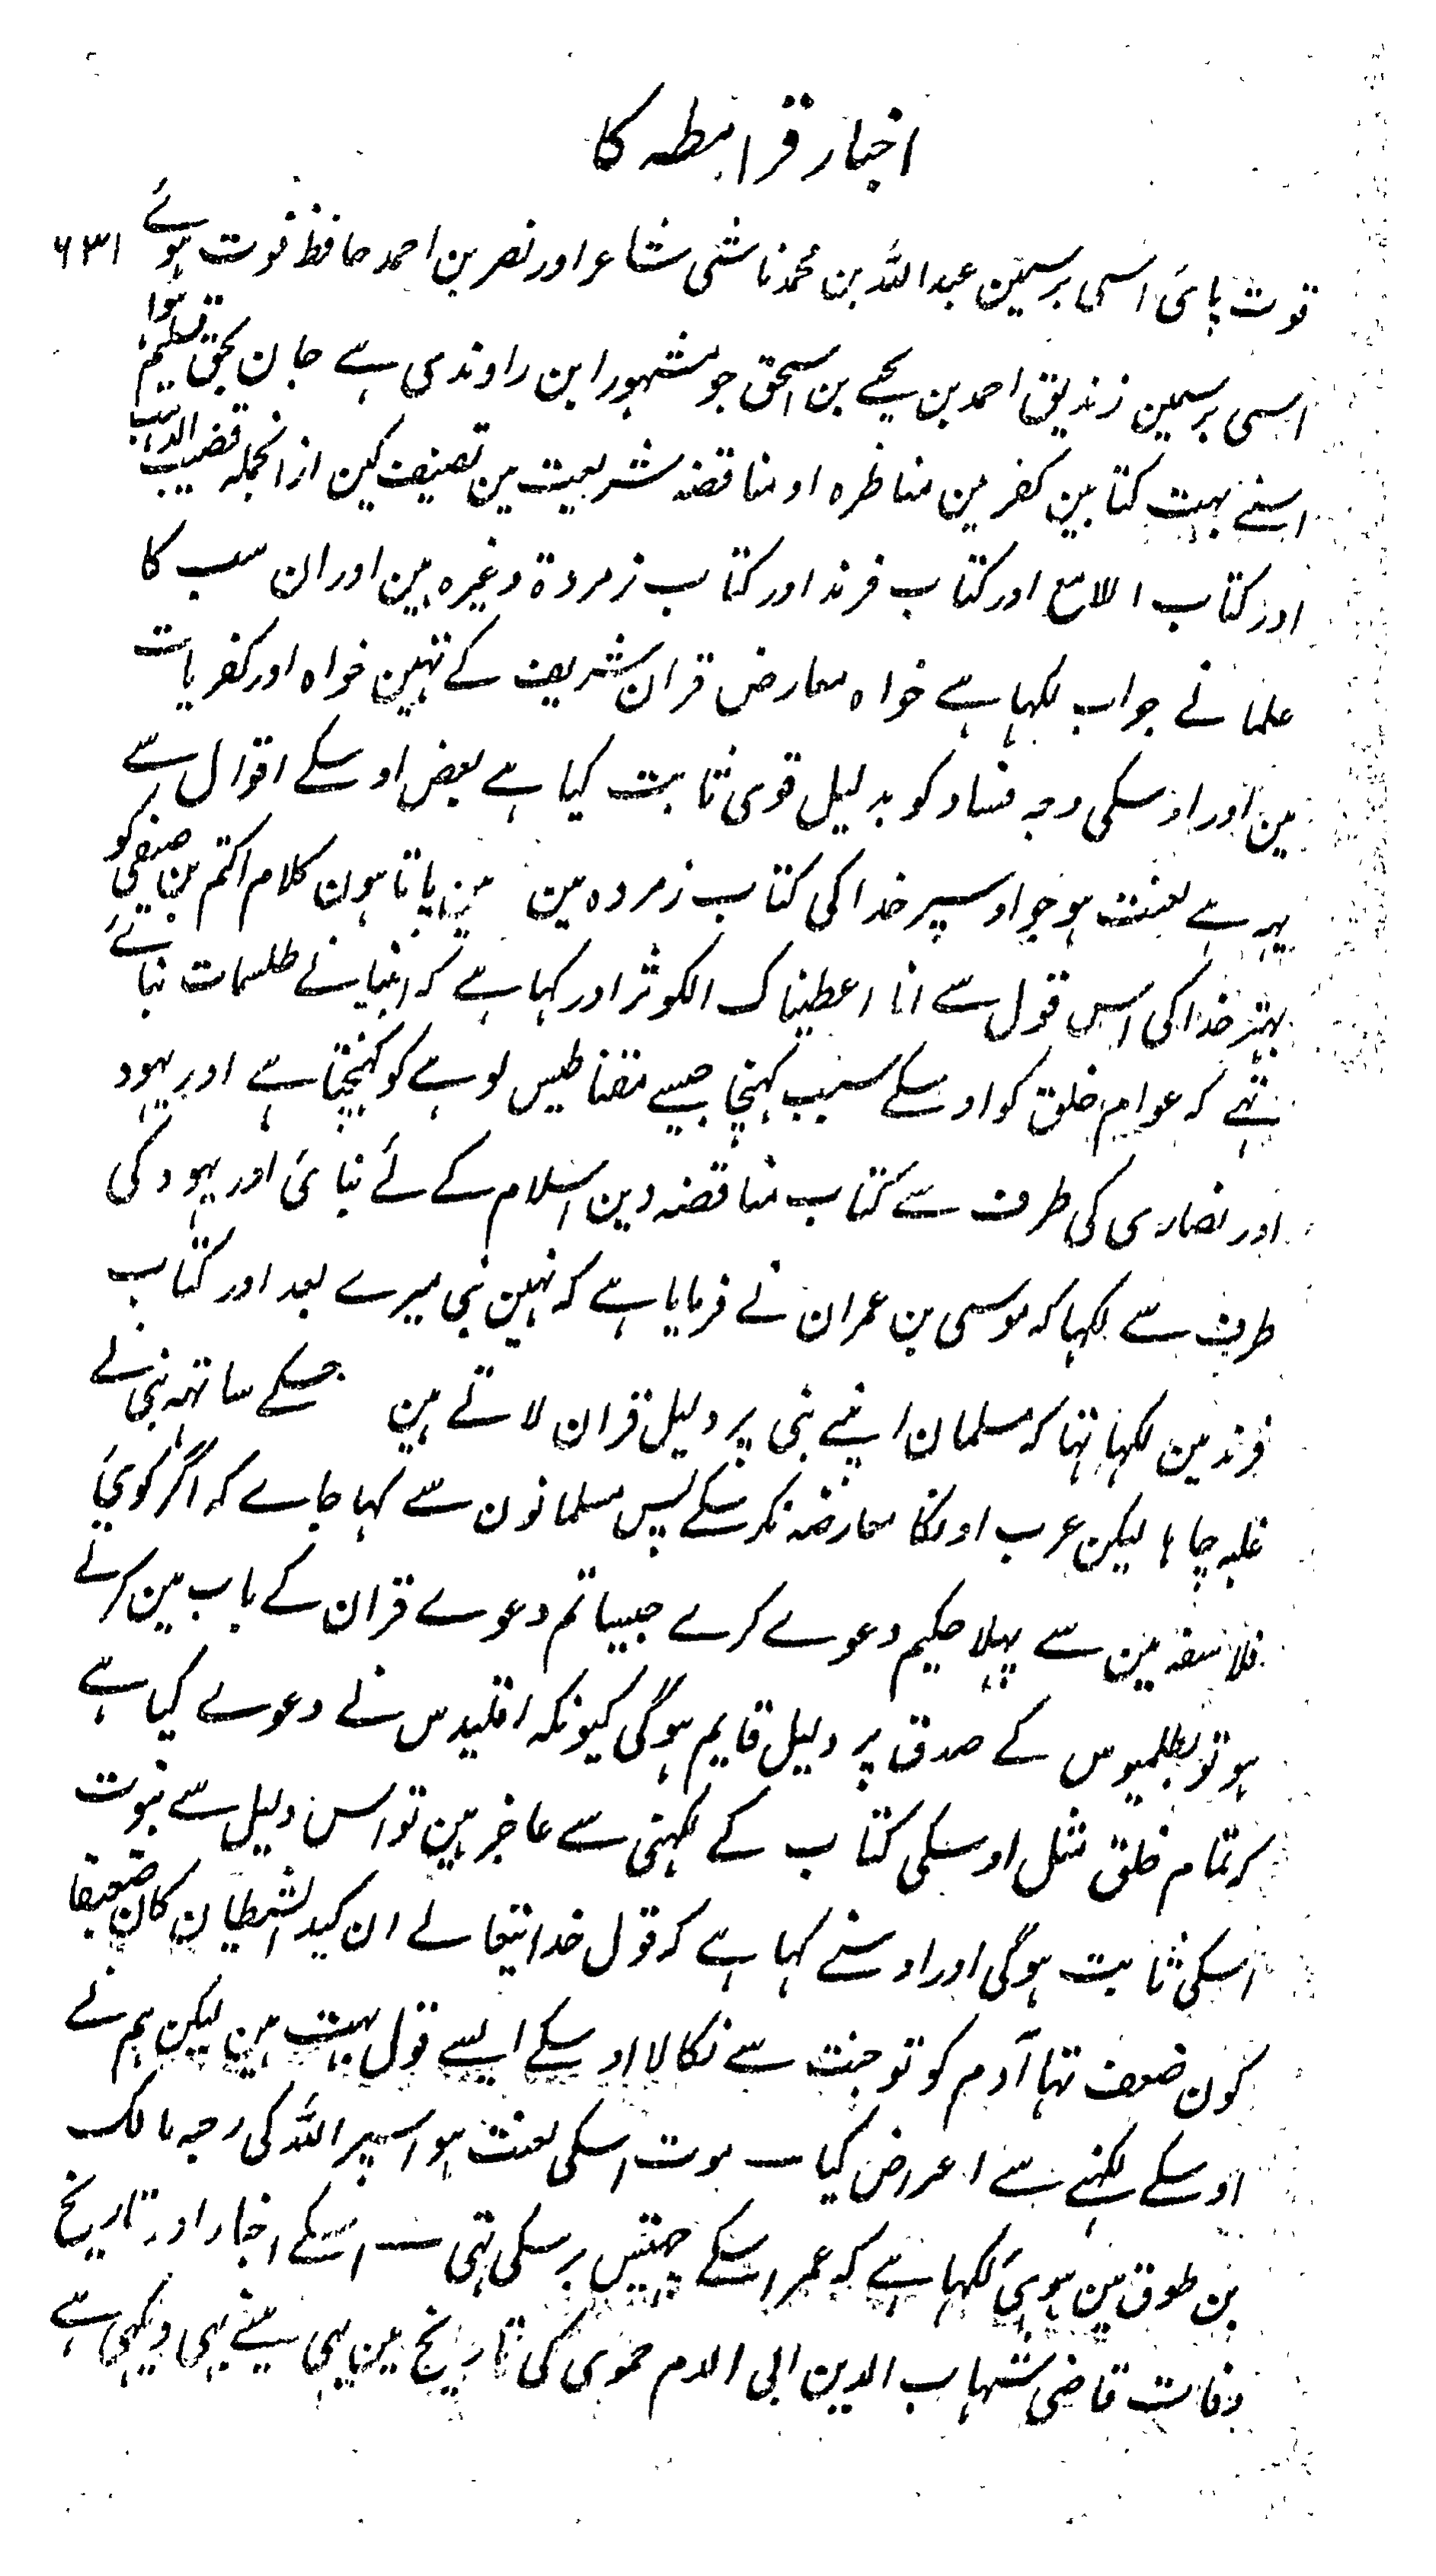 اخبار قرامطہ کا
۶۳۱
فوت پائی اسی برسمین عبد اللہ بن محمد ناشی شاعر اور نصر بن احمد حافظ فوت ہوئے
اسی برسمین زندیق احمد بن یحیے بن اسحق جو مشہور ابن راوندی ہے جان بحق تسلیم ہوا
اسنے بہت کتابین کفر مین مناظرہ او مناقضہ شریعیت مین تصنیف کین از انجملہ قضیب الذہب
اور کتاب اللامع اور کتاب فرند اور کتاب زمردۃ وغیرہ ہین اور ان سب کا
علما نے جواب لکہا ہے خواہ معارض قران شریف کے تہین خواہ اور کفریات
مین اور اوسکی وجہ فساد کو بدلیل قوی ثابت کیا ہے بعض اوسکے اقوال سے
یہہ ہے لعنت ہو جو اوسپر خدا کی کتاب زمردہ مین مین پاتا ہون کلام اکتم بن صیفی کو
بہتر خدا کی اس قول سے انا اعطیناک الکوثر اور کہا ہے کہ انبیا نے طلسمات بنائے
تہے کہ عوام خلق کو اوسکے سبب کہنچا جیسے مقناطیس لوہے کو کہنچتا ہے اور یہود
اور نصاری کی طرف سے کتاب مناقضہ دین اسلام کے لئے بنائی اور یہود کی
طرف سے لکہا کہ موسی بن عمران نے فرمایا ہے کہ نہین نبی میرے بعد اور کتاب
فرند مین لکہا تہا کہ مسلمان اپنے نبی پر دلیل قران لاتے ہین جسکے ساتہہ نبی نے
غلبہ چاہا لیکن عرب اونکا معارضہ نکر سکے پس مسلمانون سے کہا جاے کہ اگر کوئی
فلاسفہ مین سے پہلا حکیم دعوے کرے جیسا تم دعوے قران کے باب مین کرتے
ہو تو بطلمیوس کے صدق پر دلیل قایم ہوگی کیونکہ اقلیدس نے دعوے کیا ہے
کہ تمام خلق مثل اوسکی کتاب کے لکہنی سے عاجز ہین تو اس دلیل سے نبوت
اسکی ثابت ہوگی اور اوسنے کہا ہے کہ قول خدایتعالے ان کید الشیطان کان ضعیفا
کون ضعف تہا آدم کو تو جنت سے نکالا اوسکے ایسے قول بہت ہین لیکن ہم نے
اوسکے لکہنے سے اعراض کیا ــ موت اسکی لعنت ہو اسپر اللہ کی رحبہ مالک
بن طوق مین ہوئی لکہا ہے کہ عمر اسکے چہتیس برسکی تہی ــ اسکے اخبار اور تاریخ
وفات قاضی شہاب الدین ابی الدم حموی کی تاریخ مین بہی مینے یہی دیکہی ہے